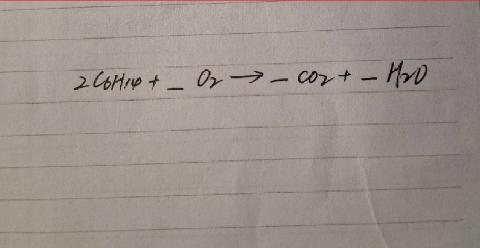 2C6H14 + _ O2 → _ CO2 + _ H2O